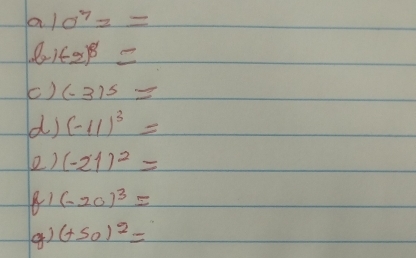 a) 0⁷ = =
b) (-2)⁸ =
c) (-3)5 =
d) (-11)³ =
e) (-21)² =
f) (-20)³ =
g) (+50)² =